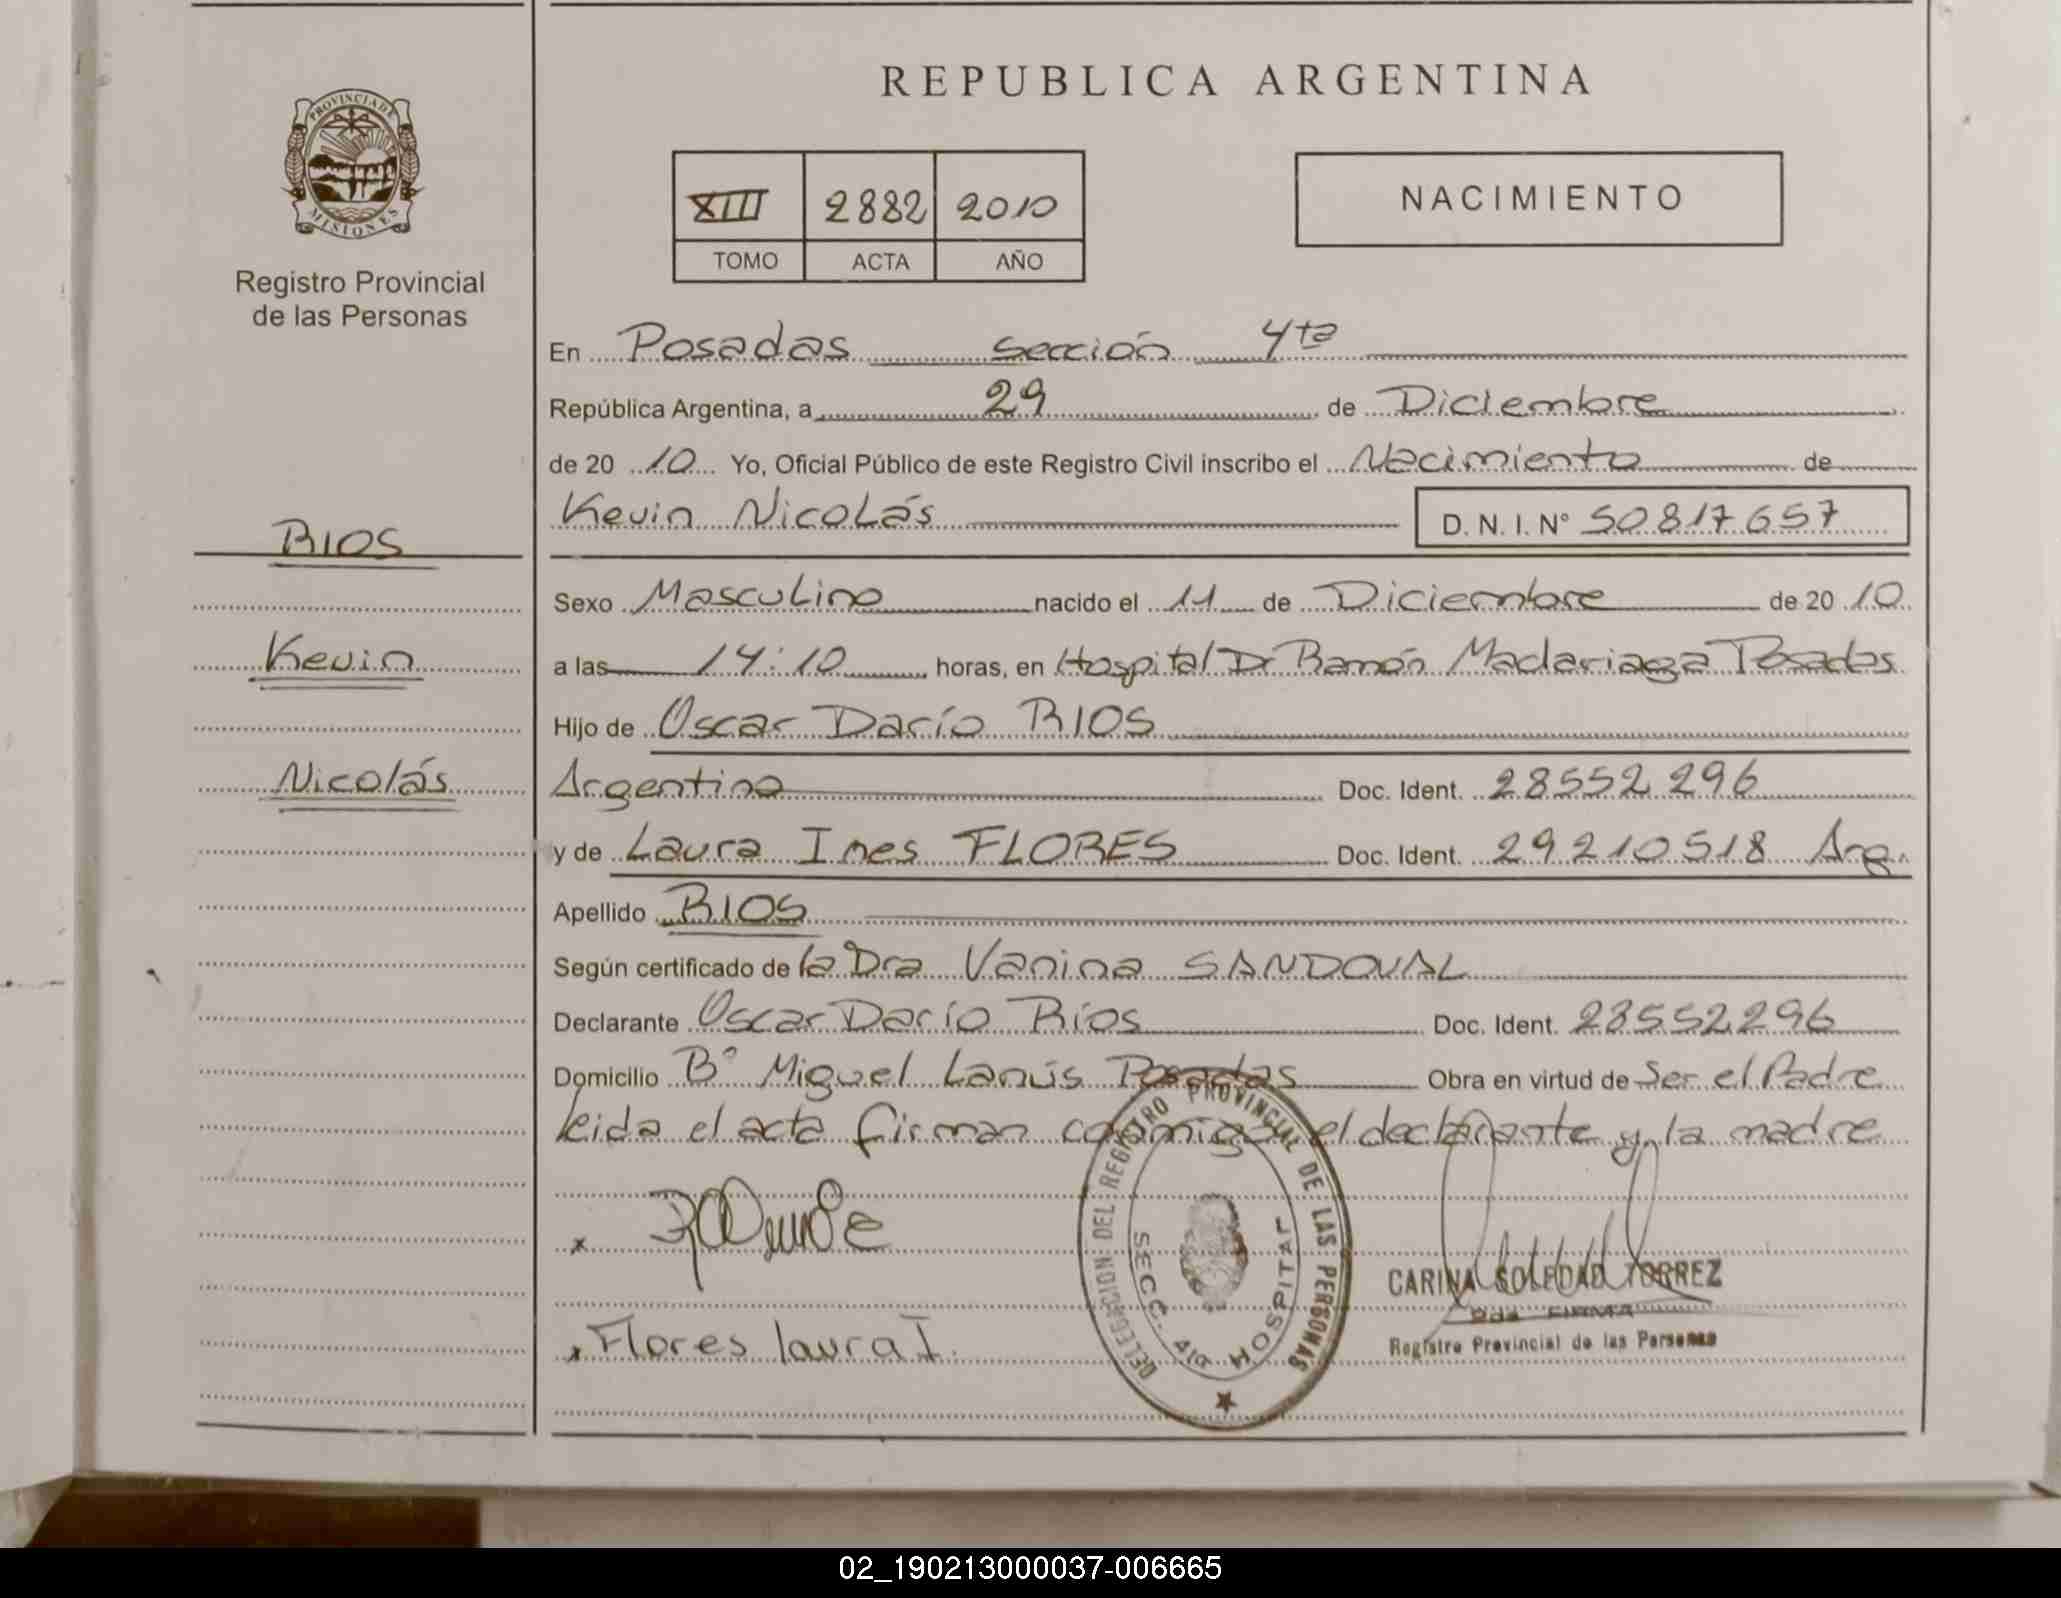 REPUBLICA ARGENTINA
PROVINCIA DE MISIONES
Registro Provincial
de las Personas
XIII 2882 2010
TOMO ACTA AÑO
NACIMIENTO
En Posadas sección 4ta
República Argentina, a 29 de Diciembre
de 20 10 Yo, Oficial Público de este Registro Civil inscribo el Nacimiento de
Kevin Nicolás D. N. I. N° 50817657
RIOS
Kevin
Nicolás
Sexo Masculino nacido el 11 de Diciembre de 20 10
a las 14:10 horas, en Hospital Dr Ramón Madariaga Posadas
Hijo de Oscar Darío RIOS
Argentino Doc. Ident. 28552296
y de Laura Ines FLORES Doc. Ident. 29210518 Arg.
Apellido RIOS
Según certificado de la Dra Vanina SANDOVAL
Declarante Oscar Darío Ríos Doc. Ident. 28552296
Domicilio B° Miguel Lanús Posadas Obra en virtud de Ser el Padre
leida el acta firman conmigo el declarante y la madre
x
x Flores laura I.
DELEGACION DEL REGISTRO PROVINCIAL DE LAS PERSONAS
SECC. 4ta HOSPITAL
CARINA SOLEDAD TORREZ
2da FIRMA
Registro Provincial de las Personas
02_190213000037-006665